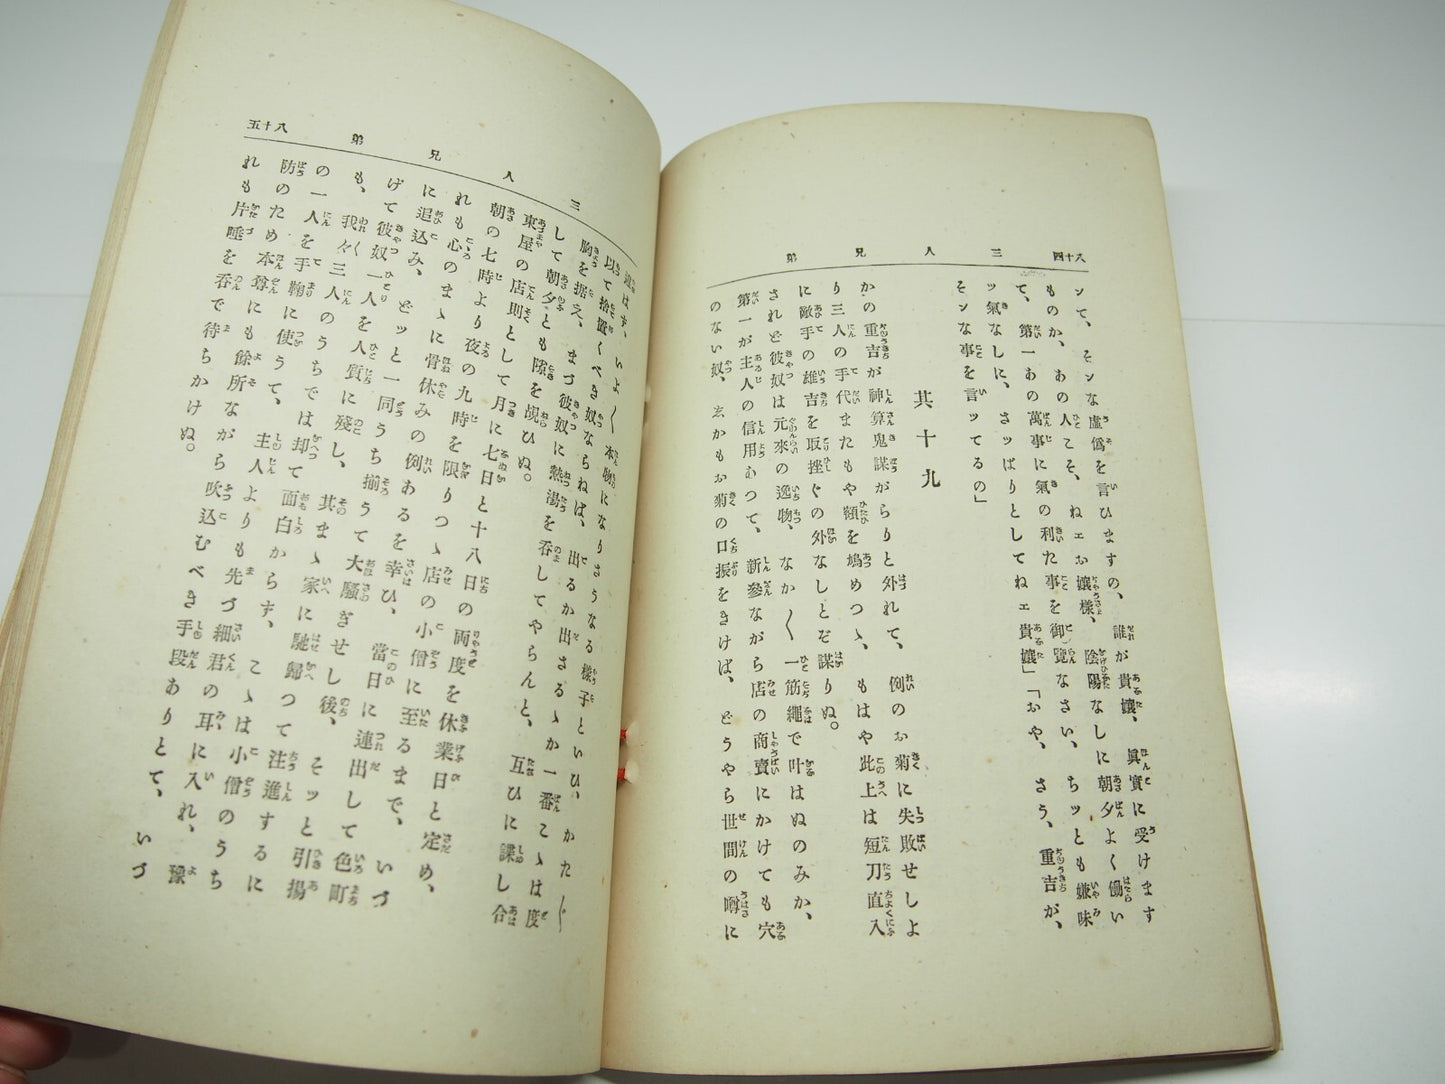 八十四
三人兄弟
ンて、そンな虛僞を言ひますの、誰が貴孃、眞實に受けます
ものか、あの人こそ、ねェお孃樣、陰陽なしに朝夕よく働い
て、第一あの萬事に氣の利た事を御覽なさい、ちッとも嫌味
ッ氣なしに、さッぱりとしてねェ貴孃」「おや、さう、重吉が、
そンな事を言ッてるの」
其十九
かの重吉が神算鬼謀がらりと外れて、例のお菊に失敗せしよ
り三人の手代またもや額を鳩めつゝ、もはや此上は短刀直入
に敵手の雄吉を取挫ぐの外なしとぞ謀りぬ。
されど彼奴は元來の逸物、なか〳〵一筋繩で叶はぬのみか、
第一が主人の信用あつて、新參ながら店の商賣にかけても穴
のない奴、志かもお菊の口振をきけば、どうやら世間の噂に
八十五
三人兄弟
違はず、いよ〳〵本物になりさうなる樣子といひ、かた〴〵
以て捨置くべき奴ならねば、出るか出さるゝか一番こゝは度
胸を据え、まづ彼奴に熱湯を呑してやらんと、互ひに諜し合
して朝夕とも隙を覘ひぬ。
東屋の店則として月に七日と十八日の両度を休業日と定め、
朝の七時より夜の九時を限りつゝ店の小僧に至るまで、いづ
れも心のまゝに骨休みの例あるを幸ひ、當日に連出して色町
に追込み、どッと一同うち揃うて大騷ぎせし後、そッと引揚
げて彼奴一人を人質に殘し、其まゝ家に馳歸つて注進するに
も、我々三人のうちでは却て面白からず、こゝは小僧のうち
の一人を手鞠に使うて、主人よりも先づ細君の耳に入れ、豫
防のため本尊にも餘所ながら吹込むべき手段ありとて、いづ
れも片唾を呑で待ちかけぬ。